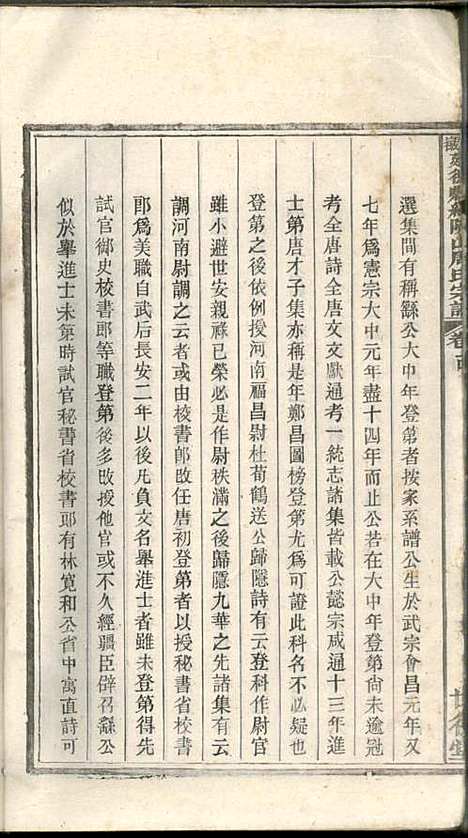 選集間有稱繇公大中年登第者按家系譜公生於武宗會昌元年又
七年爲憲宗大中元年盡十四年而止公若在大中年登第尙未逾冠
考全唐詩全唐文文獻通考一統志諸集皆載公懿宗咸通十三年進
士第唐才子集亦稱是年鄭昌圖榜登第尤爲可證此科名不必疑也
登第之後依例授河南福昌尉杜荀鶴送公歸隱詩有云登科作尉官
雖小避世安親祿已榮必是作尉秩滿之後歸隱九華之先諸集有云
調河南尉調之云者或由校書郎改任唐初登第者以授秘書省校書
郎爲美職自武后長安二年以後凡負文名舉進士者雖未登第得先
試官御史校書郎等職登第後多改授他官或不久經疆臣僻召繇公
似於舉進士未第時試官秘書省校書郎有林寬和公省中寓直詩可